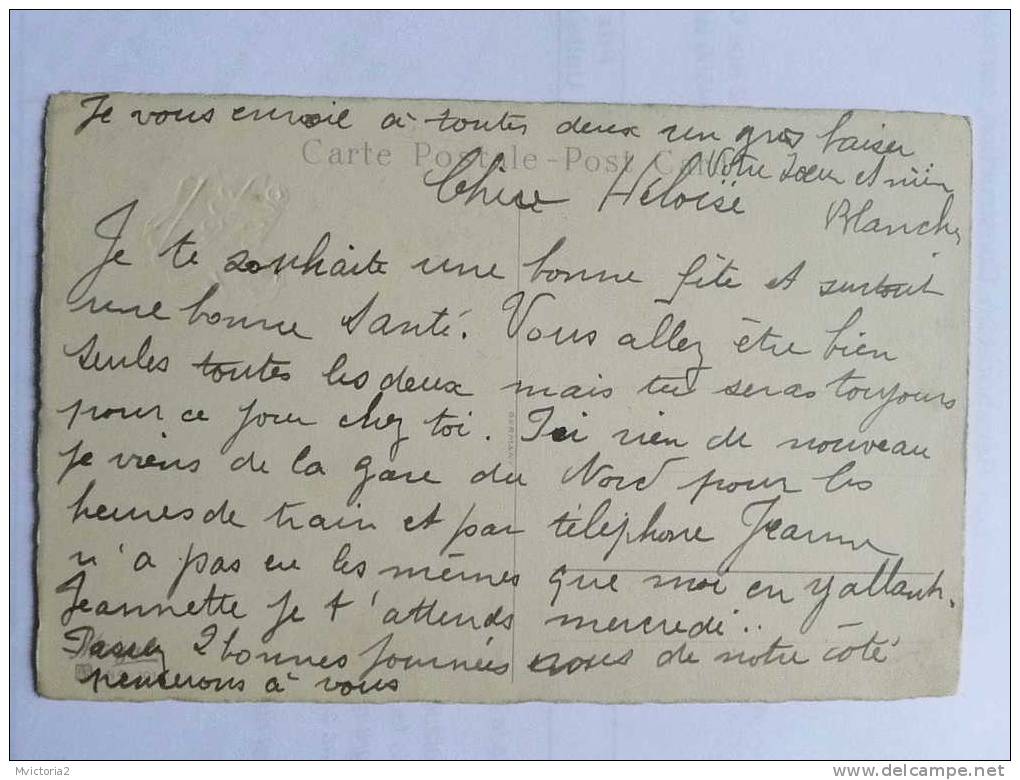 Je vous envoie à toutes deux un gros baiser
Carte Postale - Post Card
Votre soeur et
Blanche
Chère Héloïse
Je te souhaite une bonne fête et surtout
une bonne santé. Vous allez être bien
seules toutes les deux mais tu seras toujours
pour ce jour chez toi. Ici rien de nouveau
je viens de la gare du Nord pour les
heures de train et par téléphone Jeanne
n'a pas eu les mêmes que moi en y allant.
Jeannette je t'attends mercredi..
Passez 2 bonnes journées nous de notre côté
penserons à vous
GERMANY
Mvictoria2
http://www.delcampe.net